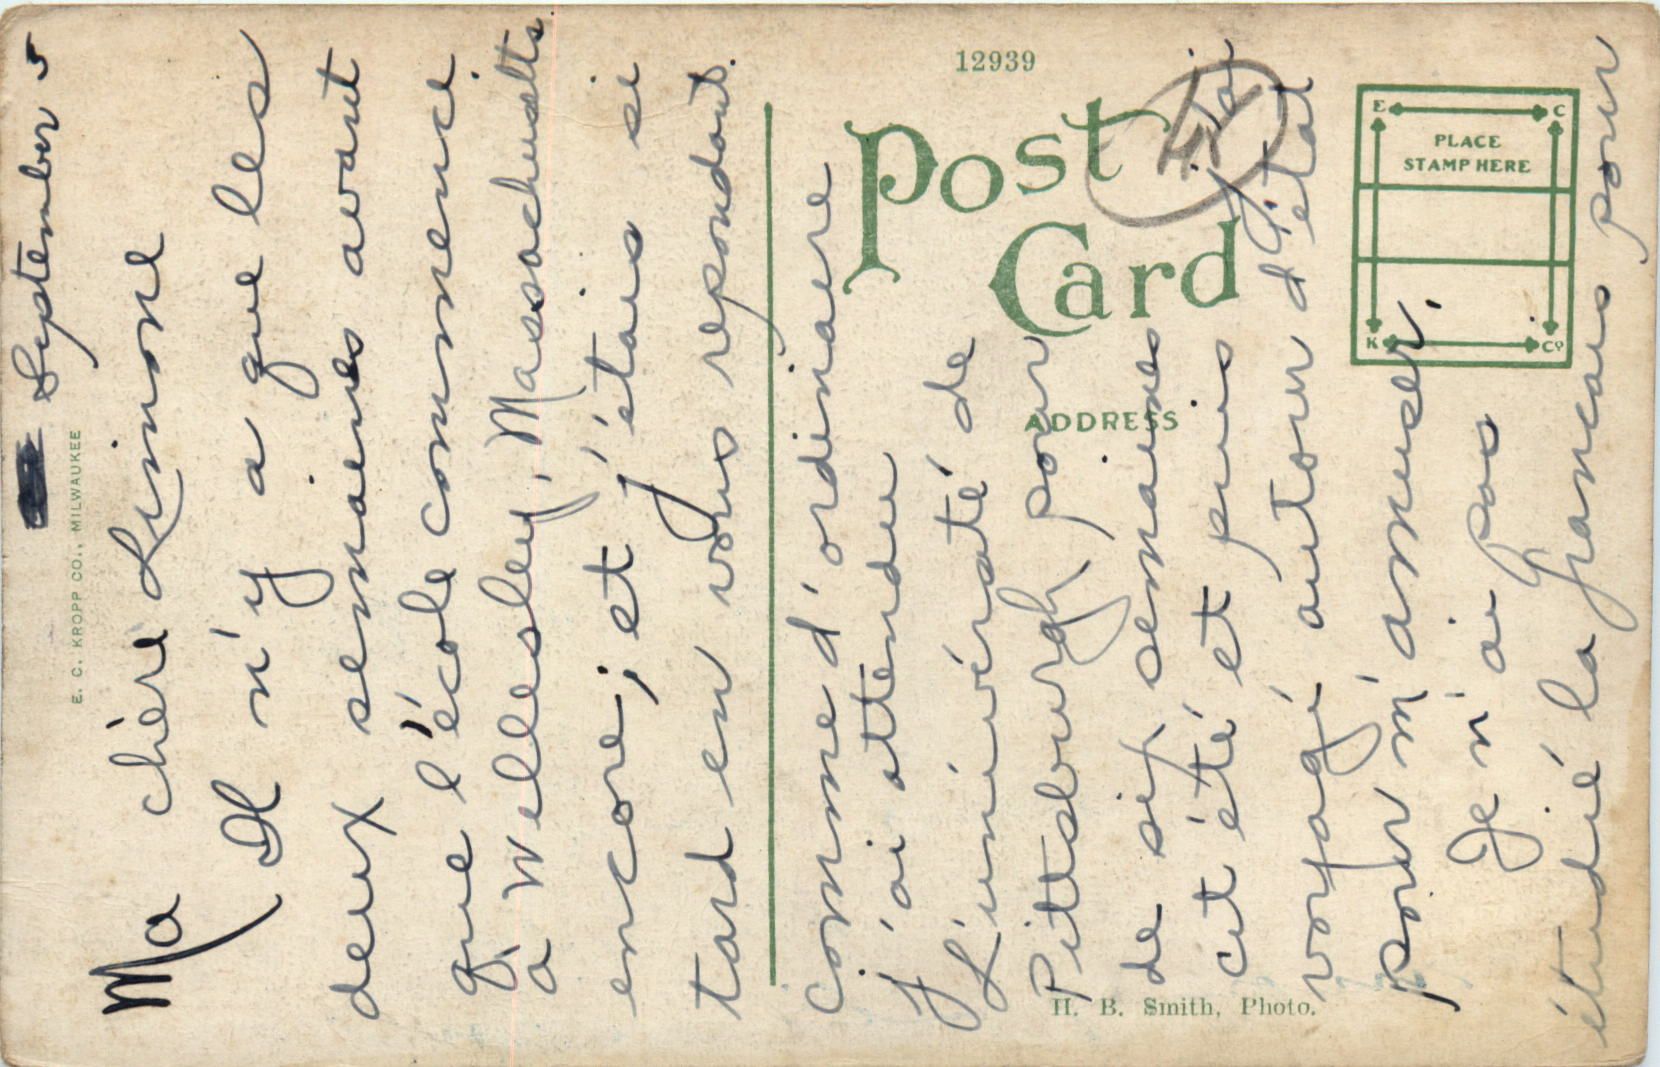 September 5
Ma chère Simone
Il n'y a que les
deux semaines avant
que l'école commence
à Wellesley, Massachusetts
encore; et j'étais si
tard en vous repondant.
comme d'ordinaere
J'ai attendu
L'univérsaté de
Pittsburgh pour
de six semaines
cit été et puis j'ai
voyagé autour d'état
pour m'amuser.
Je n'ai pas
étudié la français pour
E. C. KROPP CO., MILWAUKEE
12939
Post
Card
4X
ADDRESS
E C
PLACE
STAMP HERE
K Co
H. B. Smith, Photo.